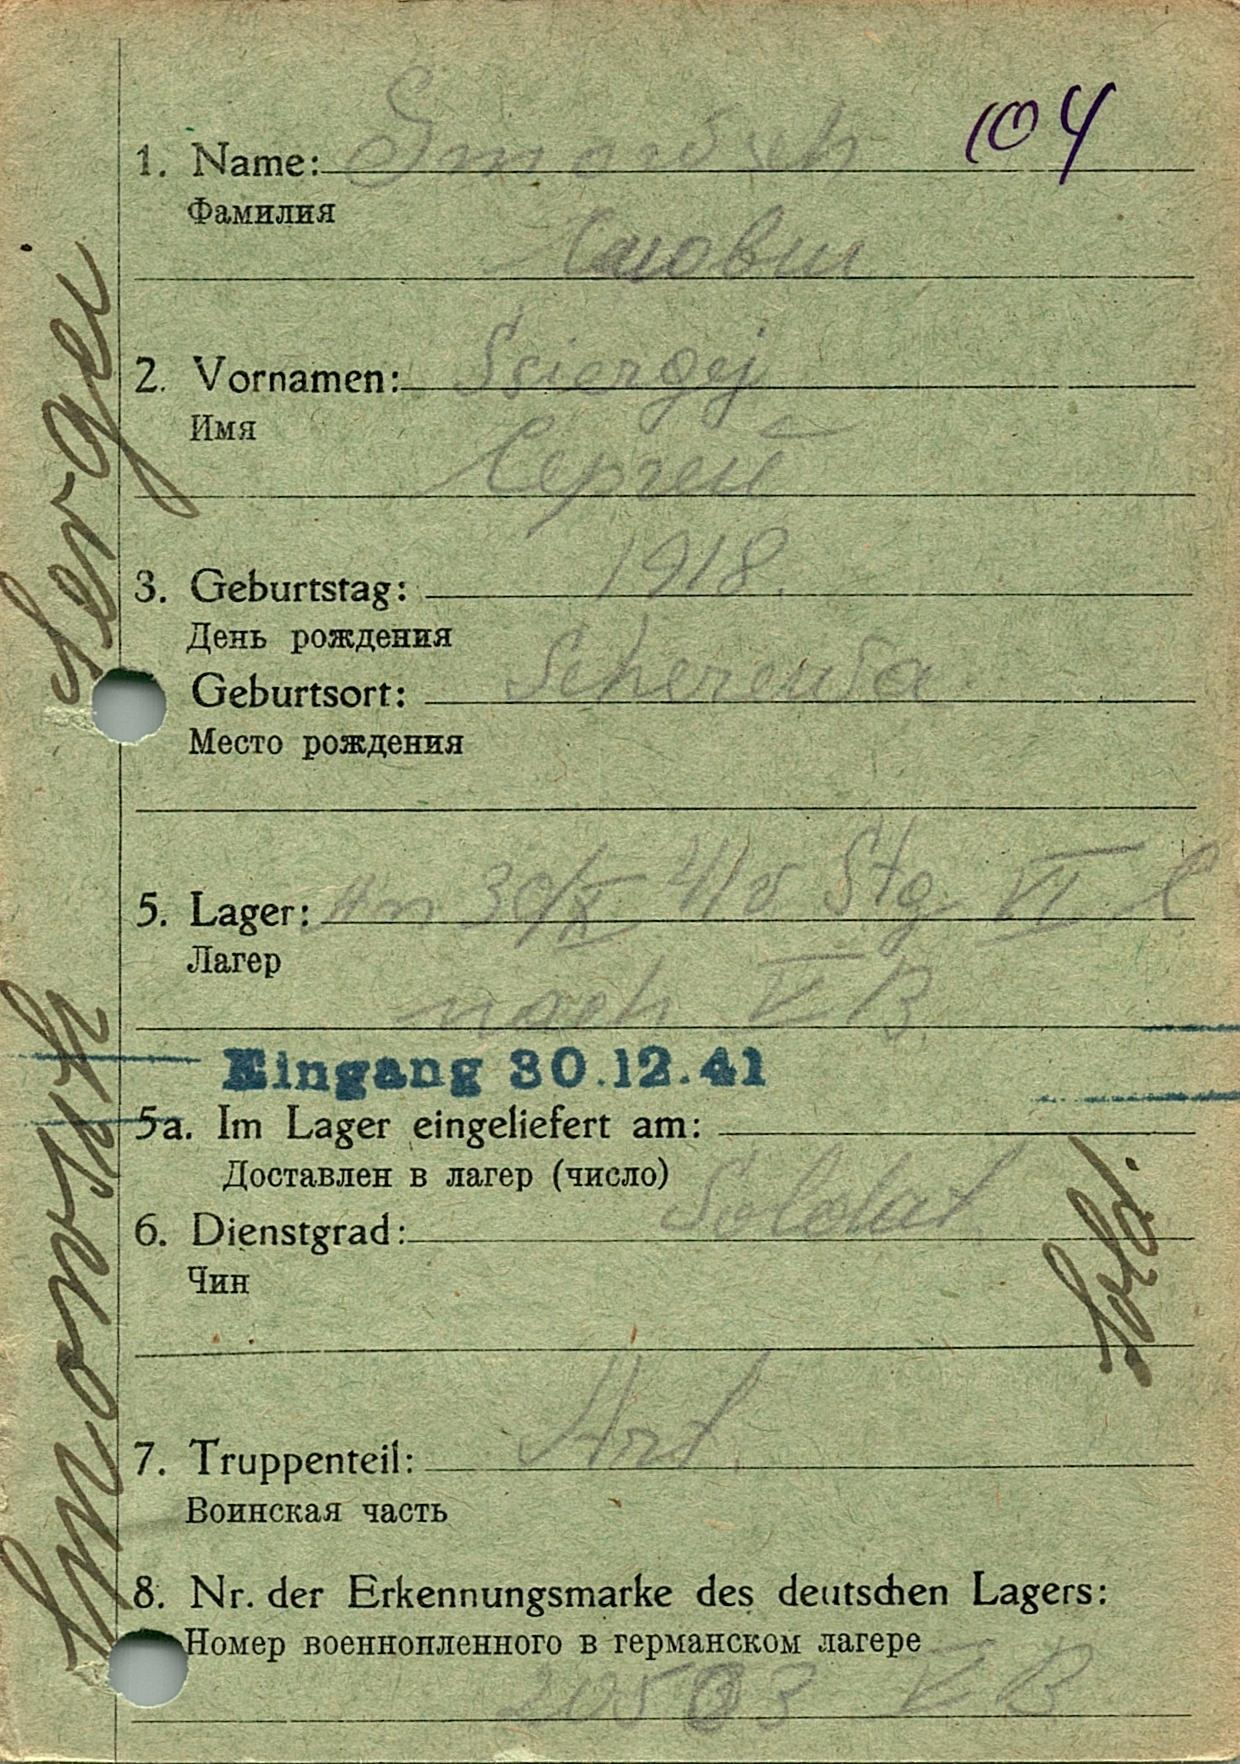 104
1. Name:
Фамилия
2. Vornamen: Ssiergej
Имя
Сергей
3. Geburtstag: 1918.
День рождения
Geburtsort:
Место рождения
5. Lager: 30/X 41 v Stg VI C
Лагер
nach V B.
Eingang 30.12.41
5a. Im Lager eingeliefert am:
Доставлен в лагер (число)
6. Dienstgrad: Soldat
Чин
Sold.
7. Truppenteil:
Воинская часть
8. Nr. der Erkennungsmarke des deutschen Lagers:
Номер военнопленного в германском лагере
V B
Smonvsch Sergei